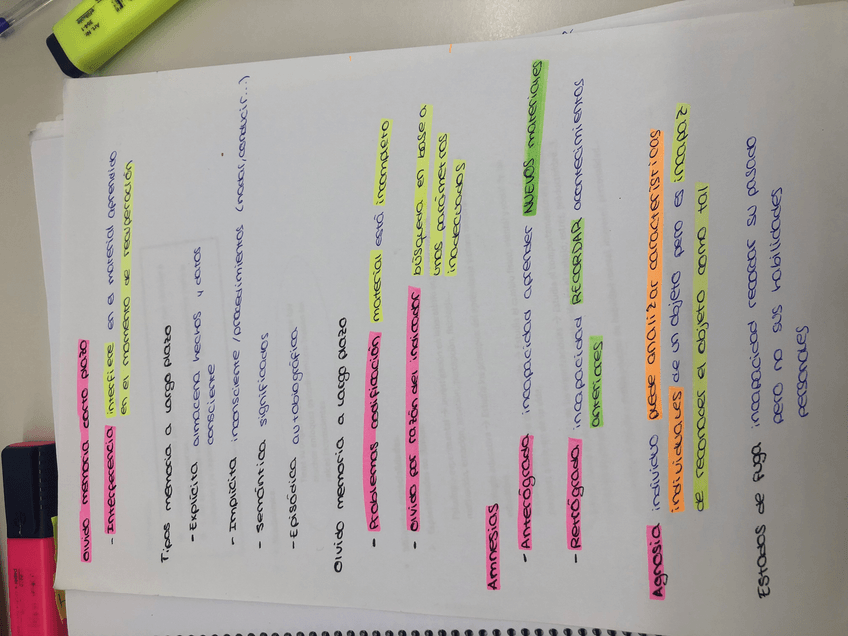 Olvido memoria corto plazo
- Interferencia interfiere en el material aprendido
en el momento de recuperación
Tipos memoria a largo plazo
- Explícita almacena hechos y datos
consciente
- Implícita inconsciente / procedimientos (nadar, conducir...)
- Semántica significados
- Episódica autobiográfica
Olvido memoria a largo plazo
- Problemas codificación material está incompleto
- Olvido por razón del indicador búsqueta en base a
unos parámetros
inadecuados
Amnesias
- Anterógrada incapacidad aprender NUEVOS materiales
- Retrógrada incapacidad RECORDAR acontecimientos
anteriores
Agnosia individuo puede analizar características
individuales de un objeto pero es incapaz
de reconocer el objeto como tal
Estados de fuga incapacidad recordar su pasado
pero no sus habilidades
personales